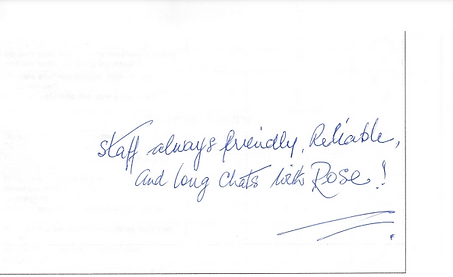 Staff always friendly, Reliable,
and long chats with Rose!